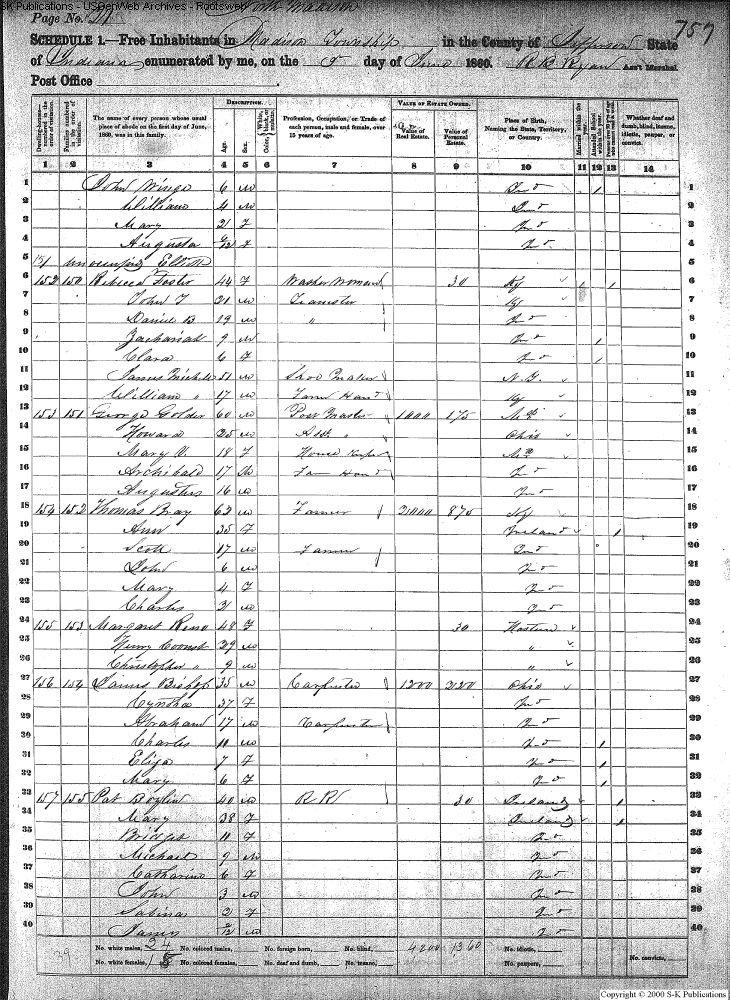 S-K Publications - USGenWeb Archives - Rootsweb
North Madison
Page No. 757
SCHEDULE 1.—Free Inhabitants in Madison Township in the County of Jefferson State
of Indiana enumerated by me, on the 5 day of June 1860. R B Ryan Ass't Marshal.
Post Office
Dwelling-house— numbered in the order of visitation.
Families numbered in the order of visitation.
The name of every person whose usual place of abode on the first day of June, 1860, was in this family.
DESCRIPTION.
Age.
Sex.
Color, White, black, or mulatto.
Profession, Occupation, or Trade of each person, male and female, over 15 years of age.
VALUE OF ESTATE OWNED.
Value of Real Estate.
Value of Personal Estate.
Place of Birth, Naming the State, Territory, or Country.
Married within the year.
Attended School within the year.
Whether deaf and dumb, blind, insane, idiotic, pauper, or convict.
1 2 3 4 5 6 7 8 9 10 11 12 13 14
1 John 6 m Ind / 1
2 William 4 m Ind 2
3 Mary 2 f Ind 3
4 Augusta /12 f Ind 4
5 151 unoccupied 5
6 152 150 Rebecca 44 F Washer Woman 30 Ky 6
7 John T 21 m Teamster Ky 7
8 Daniel B. 19 m " Ind 8
9 Zachariah 9 m Ind / 9
10 Clara 6 F Ind / 10
11 James 51 m Shoe Maker N. Y. 11
12 William " 17 m Farm Hand Ky 12
13 153 151 George Golder 60 m Post Master 1000 175 13
14 Howard 25 m Asst. " Ohio 14
15 Mary V. 18 F House Keeper 15
16 Archibald 17 m Farm Hand Ind 16
17 Augustus 16 m Ind 17
18 154 152 Thomas Bray 62 m Farmer 2000 875 18
19 Ann 35 F Ireland / 19
20 Scott 17 m Farmer Ind 20
21 John 6 m Ind 21
22 Mary 4 F Ind 22
23 Charles 2 m Ind 23
24 155 153 Margaret 48 F 30 24
25 Henry 29 m " 25
26 Christopher " 9 m " 26
27 156 154 James Bishop 35 m Carpenter 1200 220 Ohio 27
28 Cyntha 37 F Ind 28
29 Abraham 17 m Carpenter Ind 29
30 Charles 11 m Ind / 30
31 Eliza 7 F Ind / 31
32 Mary 6 F Ind / 32
33 157 155 Pat Boylin 40 m R R 30 Ireland / 33
34 Mary 38 F Ireland / 34
35 Bridget 11 F Ind 35
36 Michael 9 m Ind 36
37 Catharine 6 F Ind 37
38 John 3 m Ind 38
39 Sabina 2 F Ind 39
40 James /12 m Ind 40
39 No. white males, 24 No. colored males, No. foreign born, No. blind, 4200 1360 No. idiotic,
No. white females, 15 No. colored females, No. deaf and dumb, No. insane, No. paupers, No. convicts,
Copyright © 2000 S-K Publications